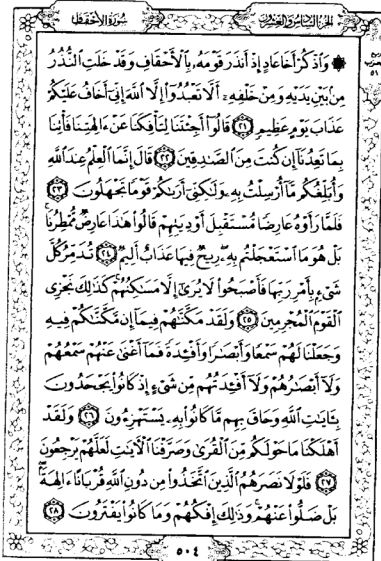 الجزء السادس والعشرون
سورة الأحقاف
۞ وَاذْكُرْ أَخَا عَادٍ إِذْ أَنذَرَ قَوْمَهُ بِالْأَحْقَافِ وَقَدْ خَلَتِ النُّذُرُ
مِنْ بَيْنِ يَدَيْهِ وَمِنْ خَلْفِهِ أَلَّا تَعْبُدُوا إِلَّا اللَّهَ إِنِّي أَخَافُ عَلَيْكُمْ
عَذَابَ يَوْمٍ عَظِيمٍ ٢١ قَالُوا أَجِئْتَنَا لِتَأْفِكَنَا عَنْ ءَالِهَتِنَا فَأْتِنَا
بِمَا تَعِدُنَا إِن كُنتَ مِنَ الصَّٰدِقِينَ ٢٢ قَالَ إِنَّمَا الْعِلْمُ عِندَ اللَّهِ
وَأُبَلِّغُكُم مَّا أُرْسِلْتُ بِهِ وَلَٰكِنِّي أَرَىٰكُمْ قَوْمًا تَجْهَلُونَ ٢٣
فَلَمَّا رَأَوْهُ عَارِضًا مُّسْتَقْبِلَ أَوْدِيَتِهِمْ قَالُوا هَٰذَا عَارِضٌ مُّمْطِرُنَا
بَلْ هُوَ مَا اسْتَعْجَلْتُم بِهِ رِيحٌ فِيهَا عَذَابٌ أَلِيمٌ ٢٤ تُدَمِّرُ كُلَّ
شَيْءٍ بِأَمْرِ رَبِّهَا فَأَصْبَحُوا لَا يُرَىٰ إِلَّا مَسَٰكِنُهُمْ كَذَٰلِكَ نَجْزِي
الْقَوْمَ الْمُجْرِمِينَ ٢٥ وَلَقَدْ مَكَّنَّٰهُمْ فِيمَا إِن مَّكَّنَّٰكُمْ فِيهِ
وَجَعَلْنَا لَهُمْ سَمْعًا وَأَبْصَٰرًا وَأَفْئِدَةً فَمَا أَغْنَىٰ عَنْهُمْ سَمْعُهُمْ
وَلَا أَبْصَٰرُهُمْ وَلَا أَفْئِدَتُهُم مِّن شَيْءٍ إِذْ كَانُوا يَجْحَدُونَ
بِـَٔايَٰتِ اللَّهِ وَحَاقَ بِهِم مَّا كَانُوا بِهِ يَسْتَهْزِءُونَ ٢٦ وَلَقَدْ
أَهْلَكْنَا مَا حَوْلَكُم مِّنَ الْقُرَىٰ وَصَرَّفْنَا الْآيَٰتِ لَعَلَّهُمْ يَرْجِعُونَ
٢٧ فَلَوْلَا نَصَرَهُمُ الَّذِينَ اتَّخَذُوا مِن دُونِ اللَّهِ قُرْبَانًا ءَالِهَةً
بَلْ ضَلُّوا عَنْهُمْ وَذَٰلِكَ إِفْكُهُمْ وَمَا كَانُوا يَفْتَرُونَ ٢٨
٥٠٤